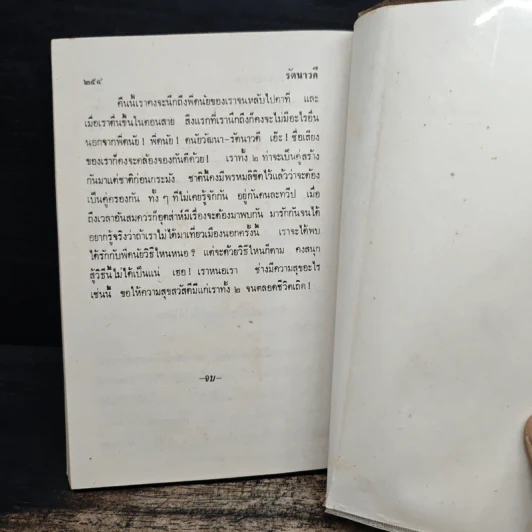 ๒๕๔ รัตนาวดี
คืนนี้เราคงจะนึกถึงพี่ดนัยของเราจนหลับไปคาที่ และ
เมื่อเราตื่นขึ้นในตอนสาย สิ่งแรกที่เรานึกถึงก็คงจะไม่มีอะไรอื่น
นอกจากพี่ดนัย! พี่ดนัย! ดนัยวัฒนา-รัตนาวดี เอ๊ะ! ชื่อเสียง
ของเราก็คงจะคล้องจองกันดีด้วย! เราทั้ง ๒ ท่าจะเป็นคู่สร้าง
กันมาแต่ชาติก่อนกระมัง ชาตินี้คงมีพรหมลิขิตไว้แล้วว่าจะต้อง
เป็นคู่ครองกัน ทั้ง ๆ ที่ไม่เคยรู้จักกัน อยู่กันคนละทวีป เมื่อ
ถึงเวลาอันสมควรก็อุตส่าห์มีเรื่องจะต้องมาพบกัน มารักกันจนได้
อยากรู้จริงว่าถ้าเราไม่ได้มาเที่ยวเมืองนอกครั้งนี้ เราจะได้พบ
ได้รักกับพี่ดนัยวิธีไหนหนอ? แต่จะด้วยวิธีไหนก็ตาม คงสนุก
สู้วิธีนี้ไม่ได้เป็นแน่ เธอ! เราหนอเรา ช่างมีความสุขอะไร
เช่นนี้ ขอให้ความสุขสวัสดีมีแก่เราทั้ง ๒ จนตลอดชีวิตเถิด!
—จบ—